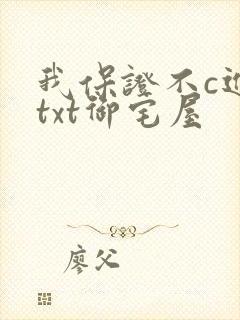 我保證不c進
txt御宅屋
廖父